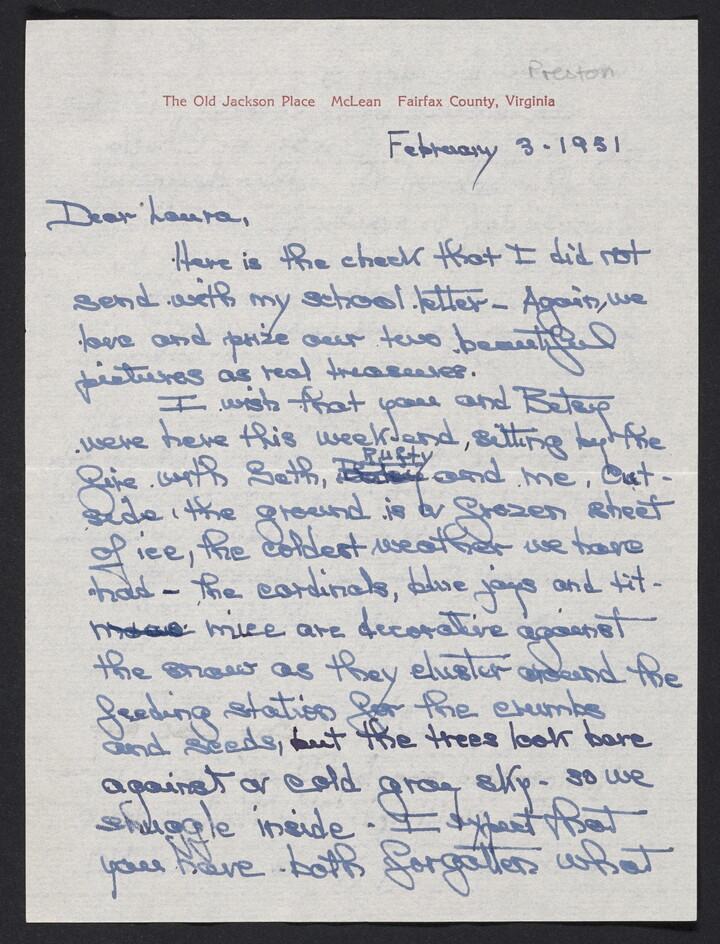 Preston
The Old Jackson Place McLean Fairfax County, Virginia
February 3 - 1951
Dear Laura,
Here is the check that I did not
send with my school letter - Again, we
love and prize our two beautiful
pictures as real treasures.
I wish that you and Betsy
were here this week-end, sitting by the
fire with Seth, Rufty and me. Out-
side the ground is a frozen sheet
of ice, the coldest weather we have
had - the cardinals, blue jays and tit-
mice are decorative against
the snow as they cluster around the
feeding station for the crumbs
and seeds, but the trees look bare
against a cold gray sky - so we
snuggle inside - I expect that
you have both forgotten what